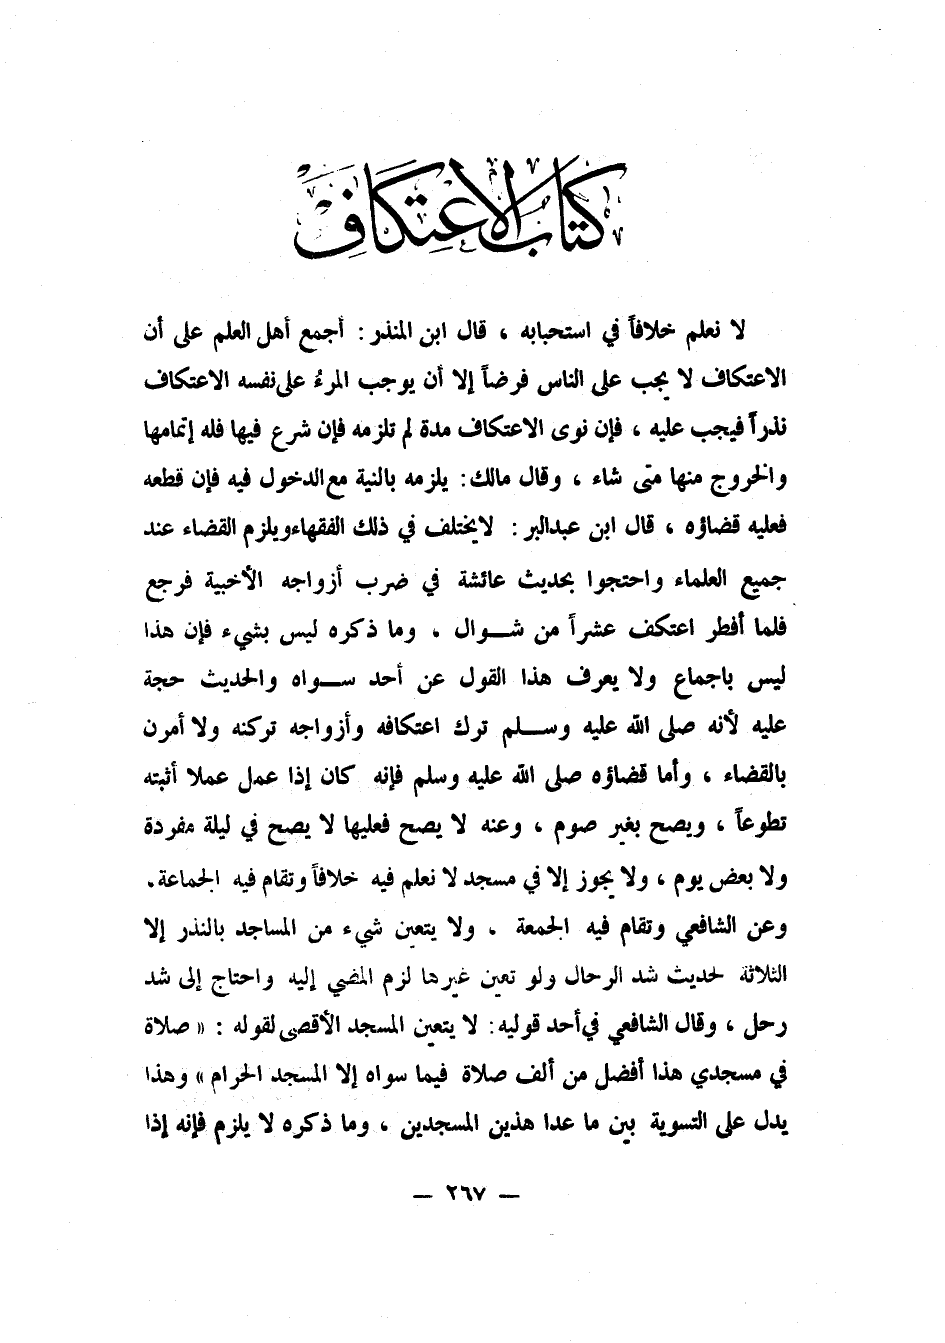 كتاب الاعتكاف
لا نعلم خلافاً في استحبابه ، قال ابن المنذر : أجمع أهل العلم على أن
الاعتكاف لا يجب على الناس فرضاً إلا أن يوجب المرءُ على نفسه الاعتكاف
نذراً فيجب عليه ، فإن نوى الاعتكاف مدة لم تلزمه فإن شرع فيها فله إتمامها
والخروج منها متى شاء ، وقال مالك : يلزمه بالنية مع الدخول فيه فإن قطعه
فعليه قضاؤه ، قال ابن عبدالبر : لا يختلف في ذلك الفقهاء ويلزم القضاء عند
جميع العلماء واحتجوا بحديث عائشة في ضرب أزواجه الأخبية فرجع
فلما أفطر اعتكف عشراً من شوال . وما ذكره ليس بشيء فإن هذا
ليس باجماع ولا يعرف هذا القول عن أحد سواه والحديث حجة
عليه لأنه صلى الله عليه وسلم ترك اعتكافه وأزواجه تركنه ولا أمرن
بالقضاء ، وأما قضاؤه صلى الله عليه وسلم فإنه كان إذا عمل عملا أثبته
تطوعاً ، ويصح بغير صوم ، وعنه لا يصح فعليها لا يصح في ليلة مفردة
ولا بعض يوم ، ولا يجوز إلا في مسجد لا نعلم فيه خلافاً وتقام فيه الجماعة .
وعن الشافعي وتقام فيه الجمعة . ولا يتعين شيء من المساجد بالنذر إلا
الثلاثة لحديث شد الرحال ولو تعين غيرها لزم المضي إليه واحتاج إلى شد
رحل ، وقال الشافعي في أحد قوليه : لا يتعين المسجد الأقصى لقوله : « صلاة
في مسجدي هذا أفضل من ألف صلاة فيما سواه إلا المسجد الحرام » وهذا
يدل على التسوية بين ما عدا هذين المسجدين ، وما ذكره لا يلزم فإنه إذا
— ٢٦٧ —